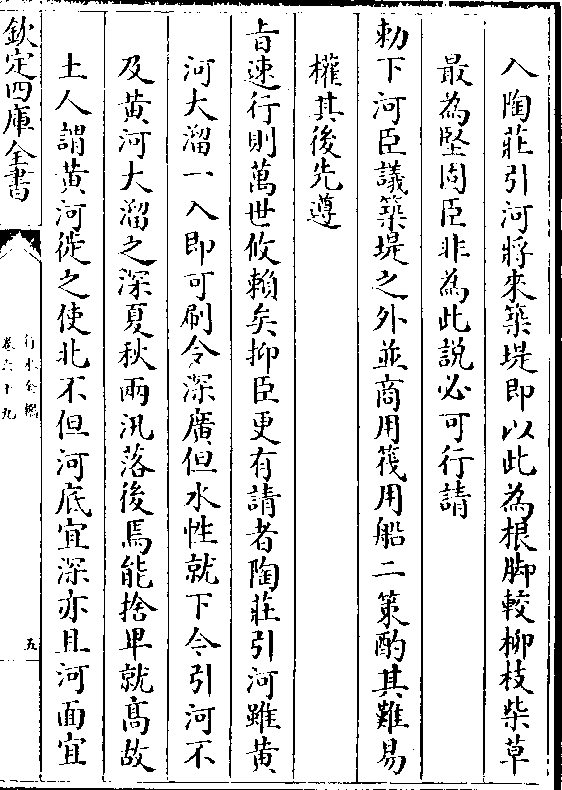 入陶莊引河將來築堤即以此為根脚較柳枝柴草
最為堅固臣非為此説必可行請
勅下河臣議築堤之外並商用筏用船二策酌其難易
權其後先遵
旨速行則萬世攸賴矣抑臣更有請者陶莊引河雖黄
河大溜一入即可刷令深廣但水性就下今引河不
及黄河大溜之深夏秋兩汛落後焉能捨卑就高故
土人謂黄河徙之使北不但河底宜深亦且河面宜
欽定四庫全書
行水金鑑
卷六十九
五